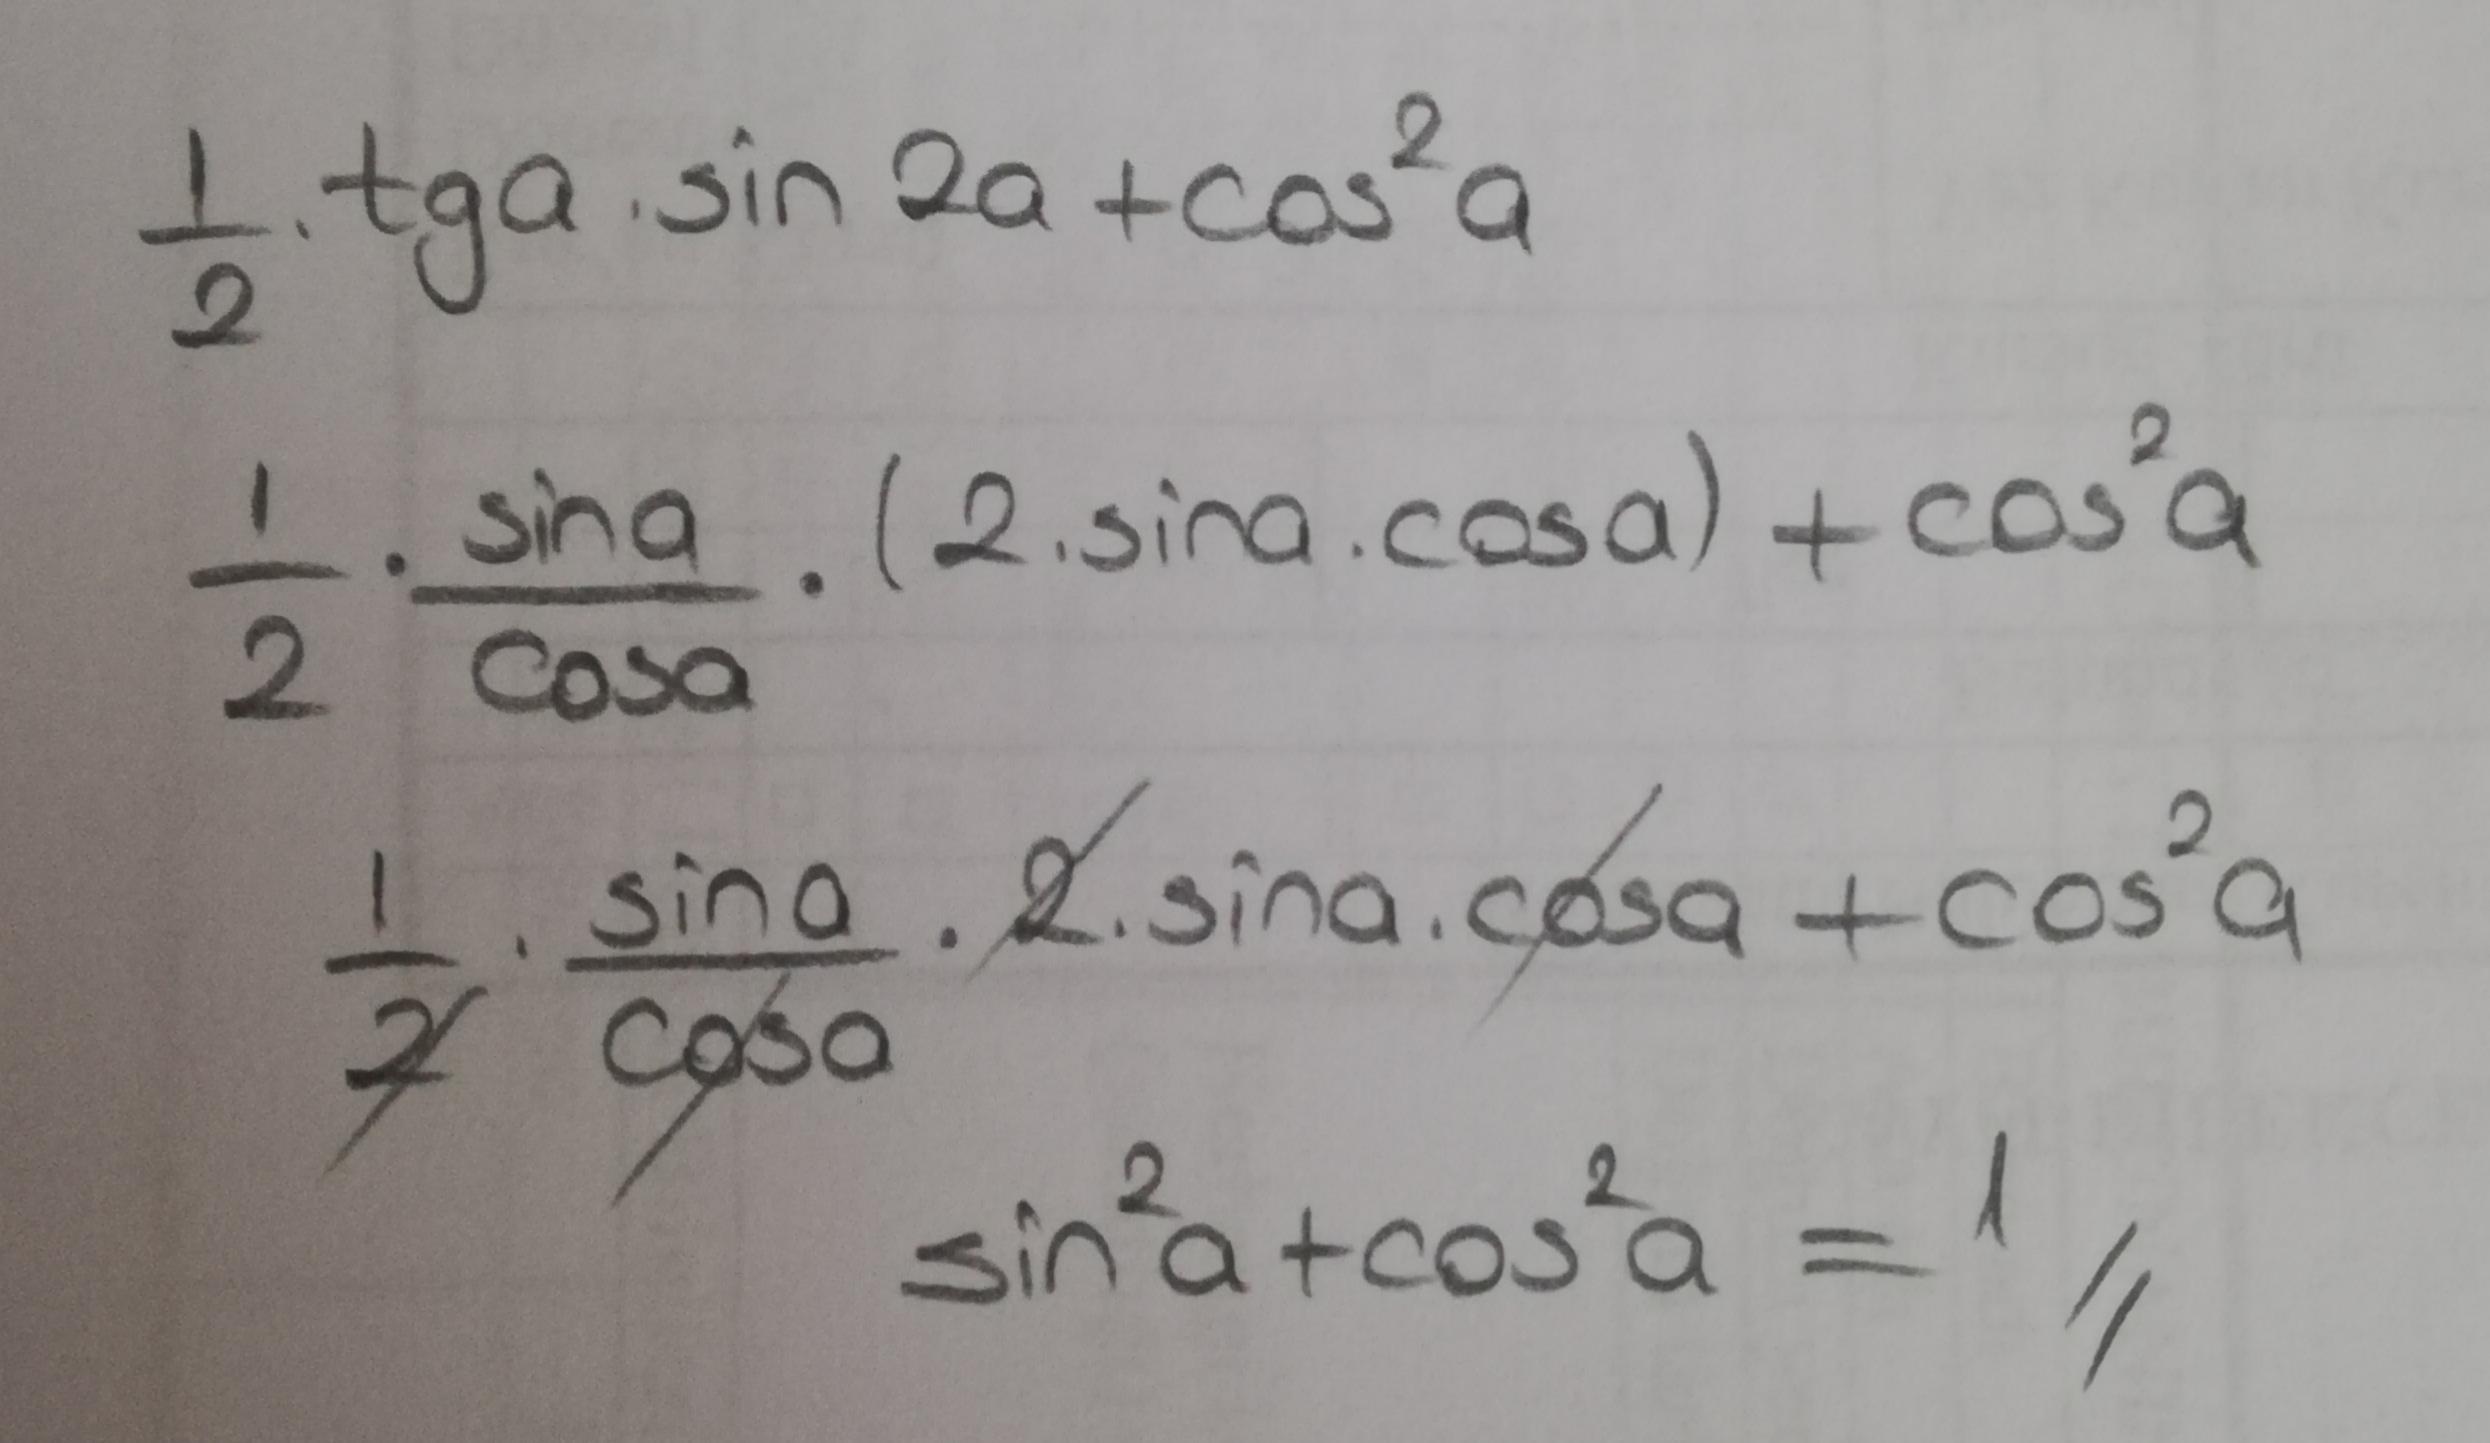 1/2 . tga . sin 2a + cos²a
1/2 . sina/cosa . (2.sina.cosa) + cos²a
1/2 . sina/cosa . 2.sina.cosa + cos²a
sin²a + cos²a = 1 //